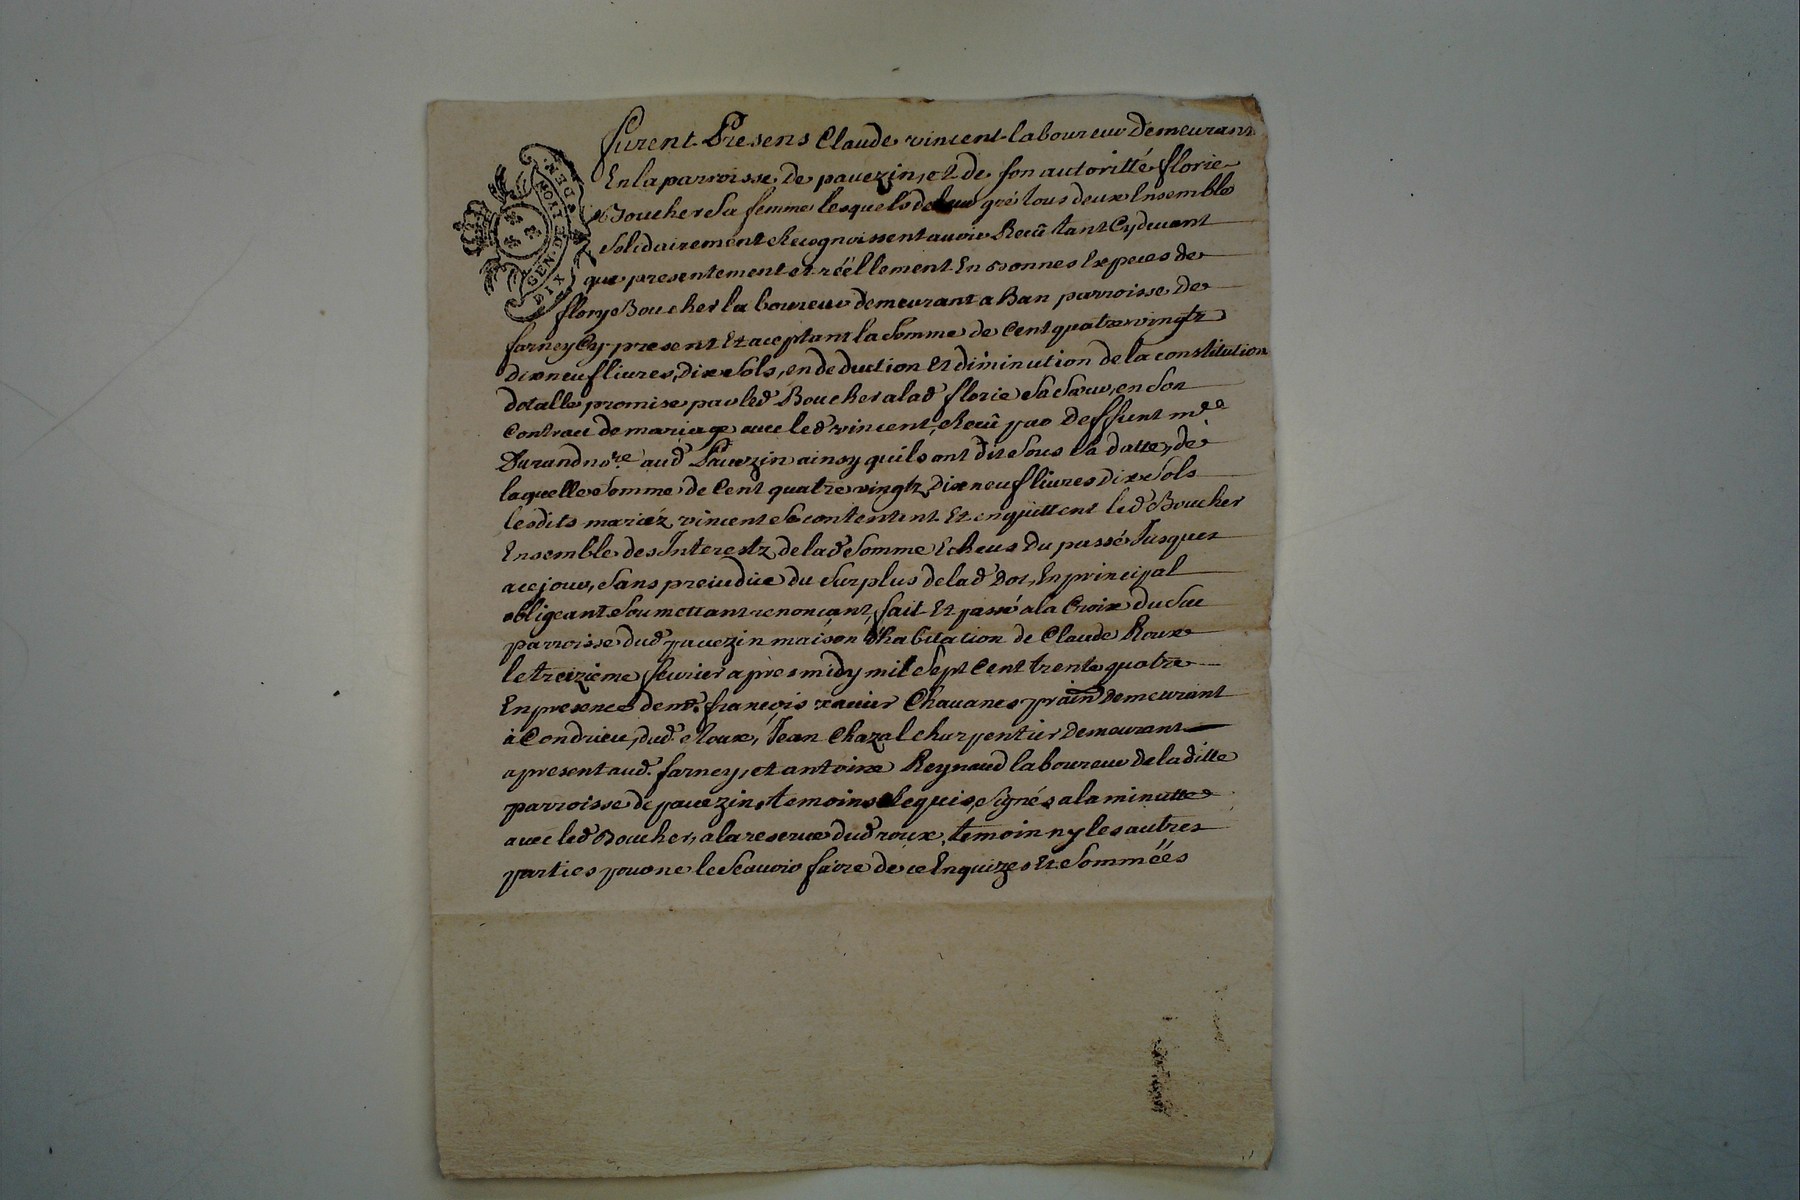 furent Presens Claude vincent laboureur Demeurant
En la parroisse de pavezin, et de son autoritté florie
Boucher Sa femme lesquels de leur gré tous deux Ensemble
Solidairement Recognoissent avoir Receû tant Cydevant
que presentement et réellement En bonnes Especes de
flory Boucher laboureur demeurant a Ban parroisse de
farney Cy present Et aceptant la Somme de Cent quatre vingtz
dixneuf livres, Dix Sols, en deduction Et diminution de la constitution
dotalle promise par led Boucher a lad florie Sa Sœur, en Son
Contract de mariage avec led vincent, Receû par Deffunt mre
Durand nore aud Pavezin ainsy quils ont dit Sous Sa datte, de
laquelle Somme de Cent quatre vingtz Dixneuf livres Dix Sols
lesdits mariéz vincent Se contentent Et en quittent led Boucher
Ensemble des Interestz de lad Somme Echeus du passé Jusques
a ce jour, Sans preiudice du Surplus de lad Dot, En principal
obligeant Soumettant renoncant, fait Et passé a la Croix du Sac
parroisse dud pavezin maison d'habitation de Claude Roux
le treizieme fevrier apres midy mil Sept Cent trente quatre
En presence de mr. françois xavier Chavanes prain demeurant
à Condrieu, dud. Roux, Jean Chazal charpentier demeurant
a present aud. farney, et antoine Reynaud laboureur de la ditte
parroisse de pavezin, temoins Requis, Signés a la minutte
avec led Boucher, a la reserve dud roux, temoin ny les autres
parties pour ne le Scavoir faire de ce Enquizes Et Sommées
DIX DEN
GEN DE LYON